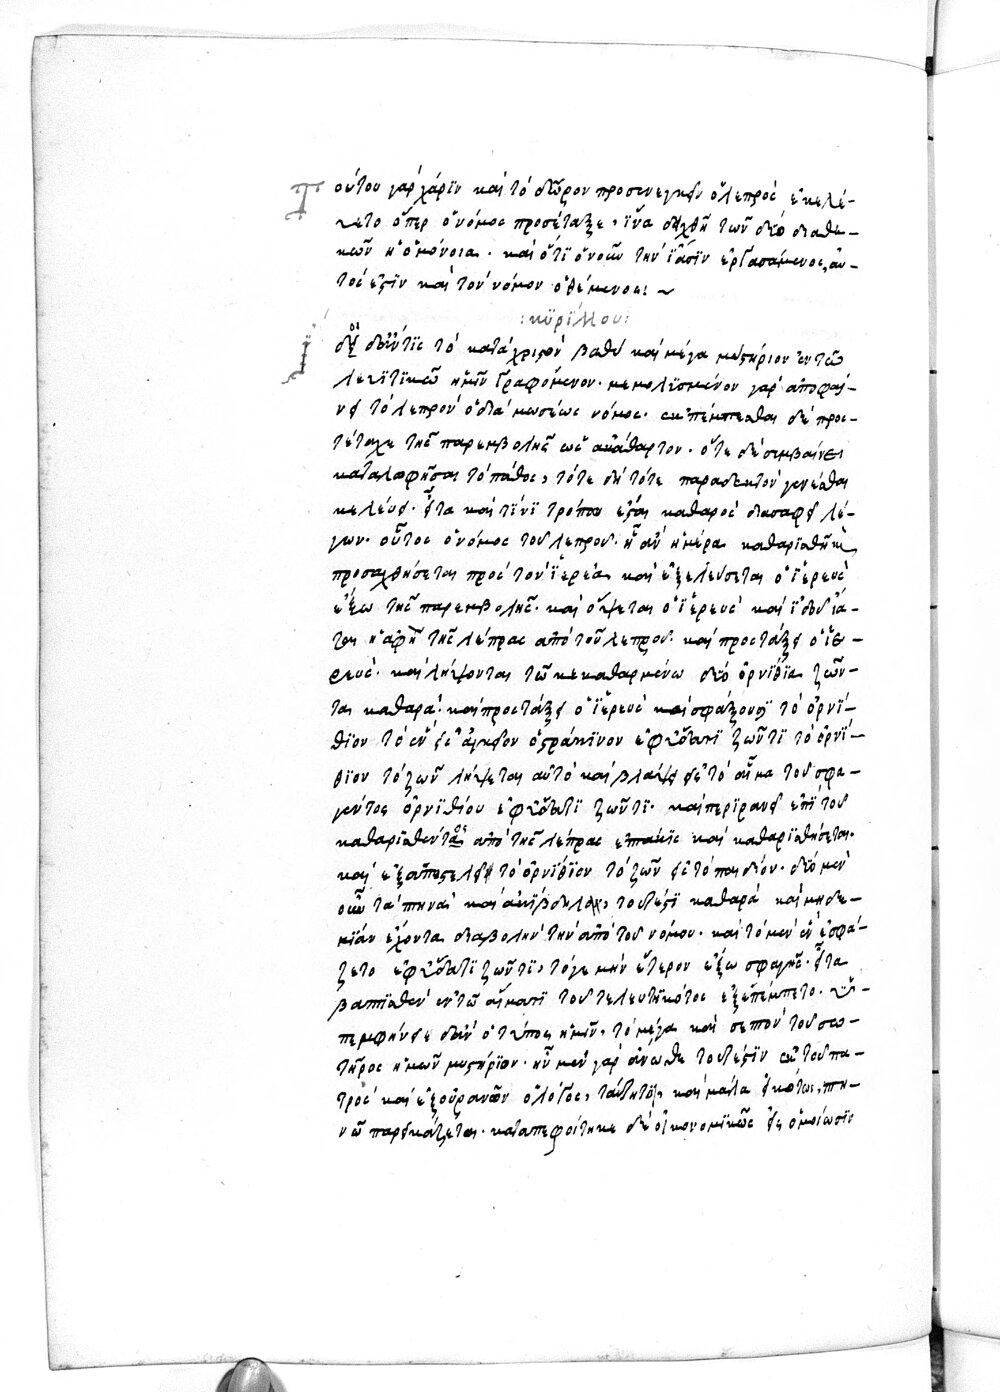 Τούτου γὰρ χάριν καὶ τὸ δῶρον προσενεγκεῖν ὁ λεπρὸς ἐκελέ-
υετο ὅπερ ὁ νόμος προσέταξε, ἵνα δειχθῇ τῶν δύο διαθη-
κῶν ἡ ὁμόνοια. καὶ ὅτι ὁ νοῶν τὴν ἴασιν ἐργασάμενος, αὐ-
τός ἐστιν καὶ τὸν νόμον ὁ θέμενος: ~
:κυρίλλου:
δέ τις τὸ κατὰ χριστὸν βαθὺ καὶ μέγα μυστήριον ἐν τῶ
λευιτικῶ ἡμῖν γραφόμενον. μεμολυσμένον γὰρ ἀποφαί-
νει τὸ λεπρὸν ὁ διὰ μωσέως νόμος. ἐκπέμπεσθαι δὲ προσ-
τέταχε τῆς παρεμβολῆς ὡς ἀκάθαρτον. ὅτε δὲ συμβαίνει
καταλωφῆσαι τὸ πάθος, τότε δὴ τότε παραδεκτὸν γενέσθαι
κελεύει. εἶτα καὶ τίνι τρόπου ἔσται καθαρὸς διασαφεῖ λέ-
γων. οὗτος ὁ νόμος τοῦ λεπροῦ. ἧ ἂν ἡμέρα καθαρισθῆ καὶ
προσαχθήσεται πρὸς τὸν ἱερέα. καὶ ἐξελεύσεται ὁ ἱερεὺς
ἔξω τῆς παρεμβολῆς. καὶ ὄψεται ὁ ἱερεὺς καὶ ἰδοὺ ἰᾶ-
ται ἡ ἁφὴ τῆς λέπρας ἀπὸ τοῦ λεπροῦ. καὶ προστάξει ὁ ἱε-
ρεύς. καὶ λήψονται τῶ κεκαθαρμένω δύο ὀρνίθια ζῶν-
τα καθαρά. καὶ προστάξει ὁ ἱερεὺς καὶ σφάξουσι τὸ ὀρνί-
θιον τὸ ἓν εἰς ἀγγεῖον ὀστράκινον ἐφ' ὕδατι ζῶντι τὸ ὀρνί-
θιον τὸ ζῶν λήψεται αὐτὸ καὶ βάψει εἰς τὸ αἷμα τοῦ σφα-
γέντος ὀρνιθίου ἐφ' ὕδατι ζῶντι. καὶ περιρανεῖ ἐπὶ τοῦ
καθαρισθέντος ἀπὸ τῆς λέπρας ἑπτάκις καὶ καθαρισθήσεται.
καὶ ἐξαποστελεῖ τὸ ὀρνίθιον τὸ ζῶν εἰς τὸ παιδίον. δύο μὲν
οὖν τὰ πτηνὰ καὶ τουτέστι καθαρὰ καὶ μηδε-
μίαν ἔχοντα διαβολὴν τὴν ἀπὸ τοῦ νόμου. καὶ τὸ μὲν ἓν ἐσφά-
ζετο ἐφ' ὕδατι ζῶντι, τό γε μὴν ἕτερον ἔξω σφαγῆς. εἶτα
βαπτισθὲν ἐν τῶ αἵματι τοῦ τελευτηκότος ἐξεπέμπετο.
ὁ τύπος ἡμῖν, τὸ μέγα καὶ σεπτὸν τοῦ σω-
τῆρος ἡμῶν μυστήριον. ἦν μὲν γὰρ ἄνωθε τουτέστιν ἐκ τοῦ πα-
τρὸς καὶ ἐξ οὐρανῶν ὁ λόγος, ταύτητοι καὶ μάλα εἰκότως, πτη-
νῶ παρεικάζεται. καταπεφοίτηκε δὲ οἰκονομικῶς εἰς ὁμοίωσιν